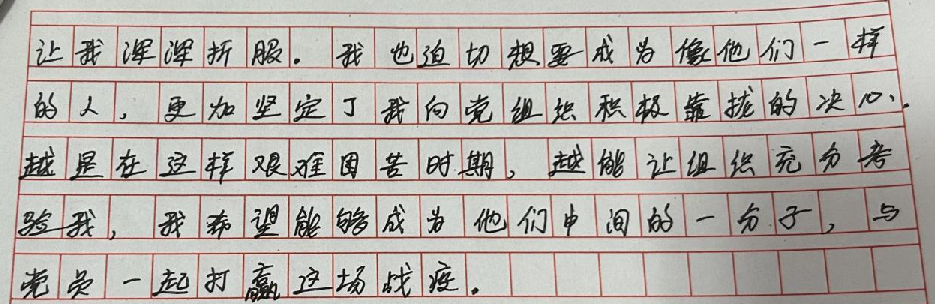 让我深深折服。我也迫切想要成为像他们一样
的人，更加坚定了我向党组织积极靠拢的决心.
越是在这样艰难困苦时期，越能让组织充分考
验我，我希望能够成为他们中间的一分子，与
党员一起打赢这场战疫.